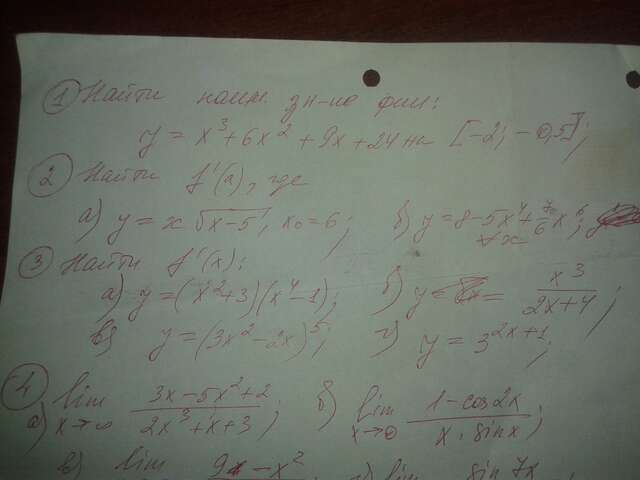 ① Найти наим. зн-ие фии:
y = x³ + 6x² + 9x + 24 на [-2; -0,5];
② Найти f'(a), где
а) y = x √x-5, x₀ = 6; б) y = 8 - 5x⁴ + x⁶;
③ Найти f'(x):
а) y = (x² + 3)(x⁴ - 1); б) y = x³/(2x+4);
в) y = (3x² - 2x)⁵; г) y = 3^(2x+1);
④ а) lim x→∞ (3x - 5x² + 2)/(2x³ + x + 3); б) lim x→0 (1 - cos2x)/(x · sinx);
в) lim 9x - x² lim sin 7x